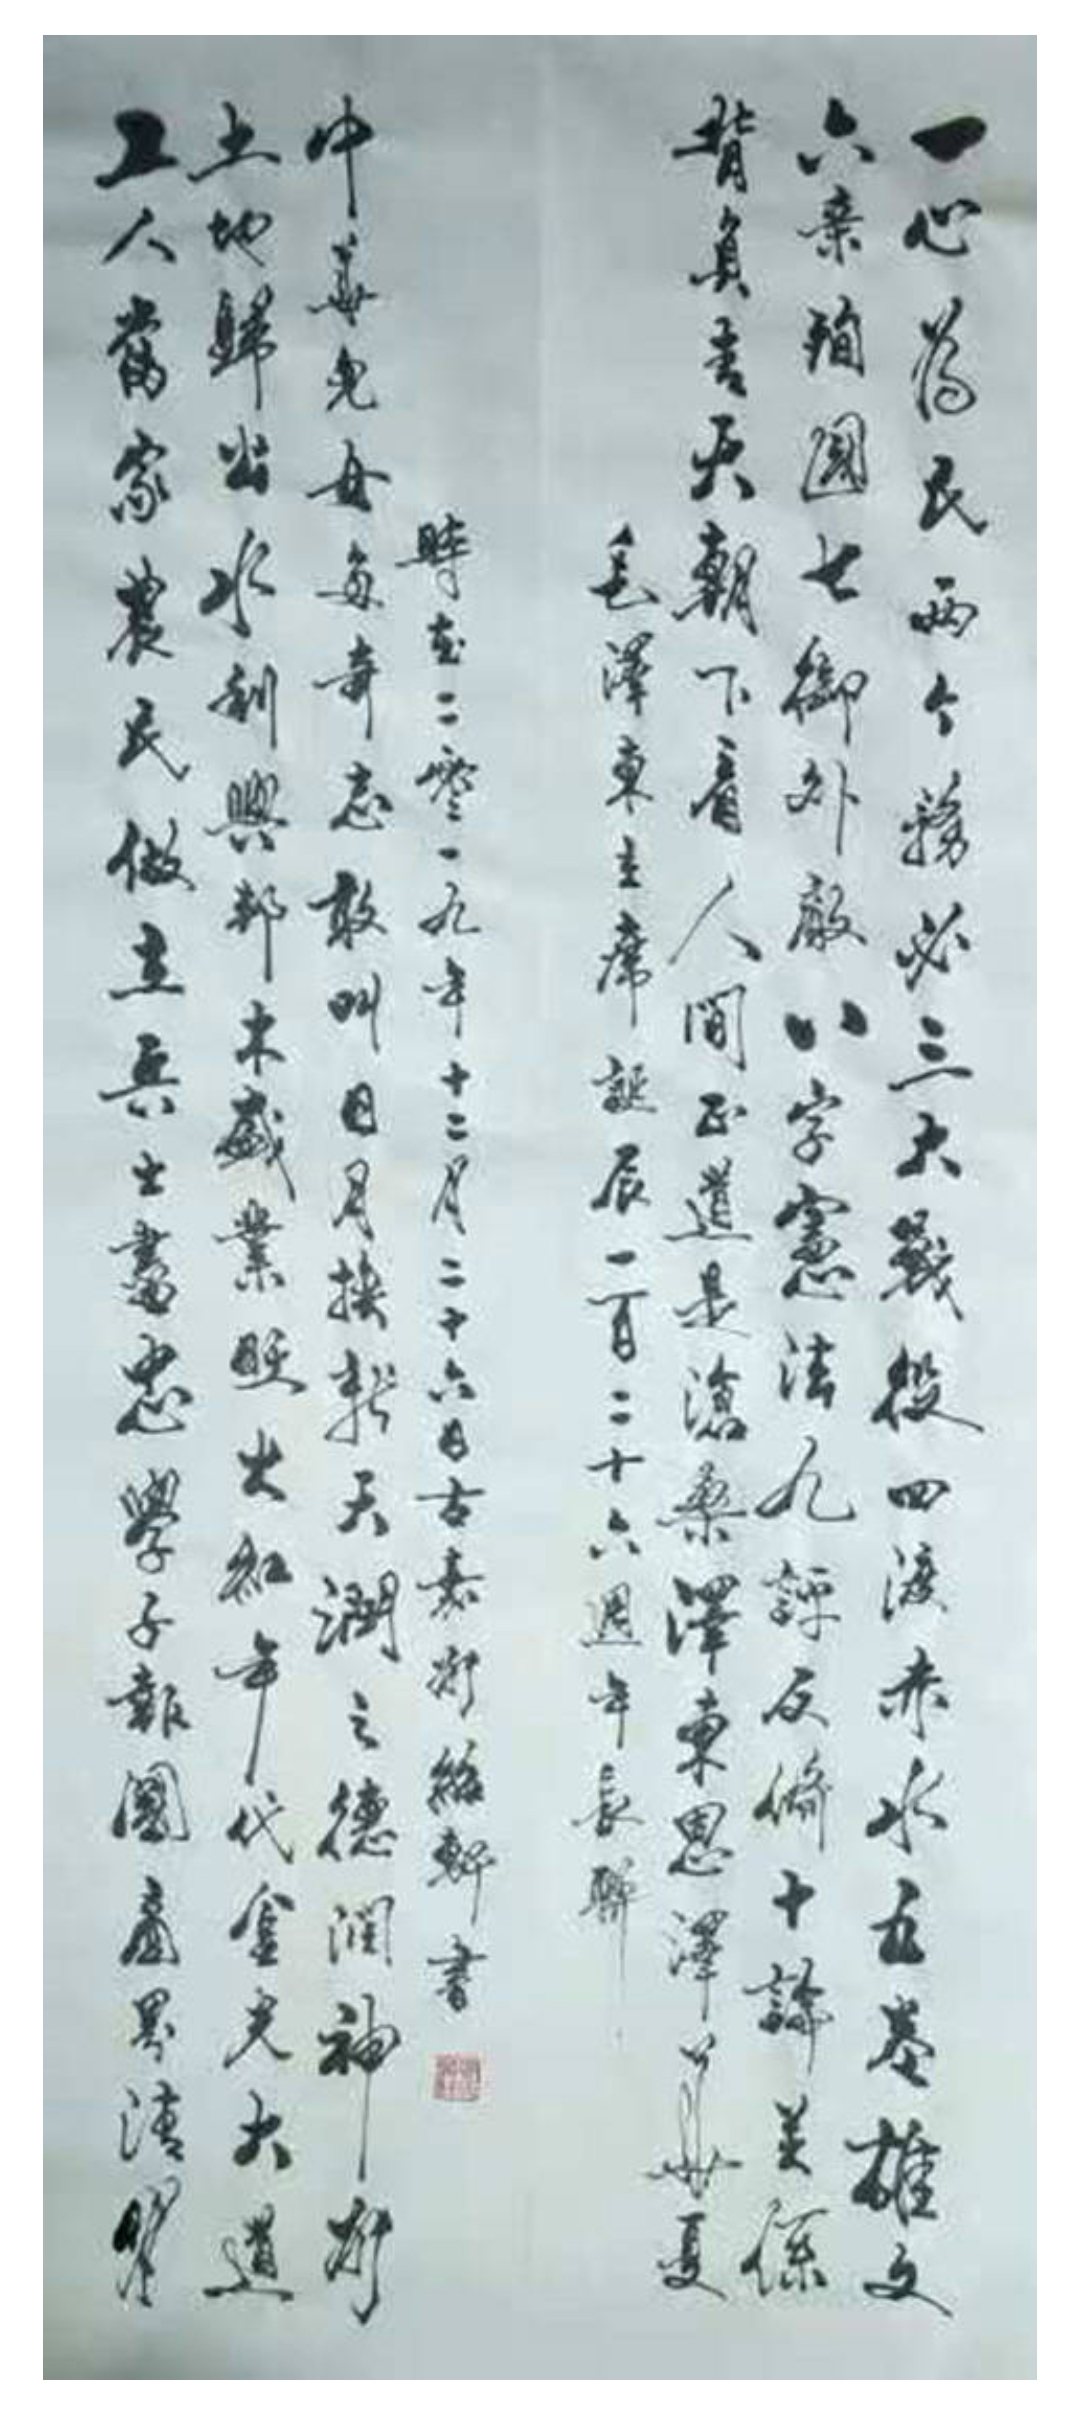 一心為民兩个務必三大戰役四渡赤水五卷雄文
六亲殉國七御外敵八字憲法九評反脩十論美係
背負青天朝下看人間正道是滄桑澤東恩澤華夏
毛澤東主席誕辰一百二十六週年長聯
工人當家農民做主兵士盡忠學子報國商界清
土地歸公水利興邦木盛業旺火紅年代金光大道
中華兒女多奇志敢叫日月換新天潤之德潤神州
時在二零一九年十二月二十六日古嘉州紹軒書